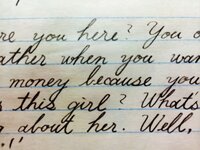 re you here? You o
ather when you wan
money because you
s this girl? What's
about her. Well,